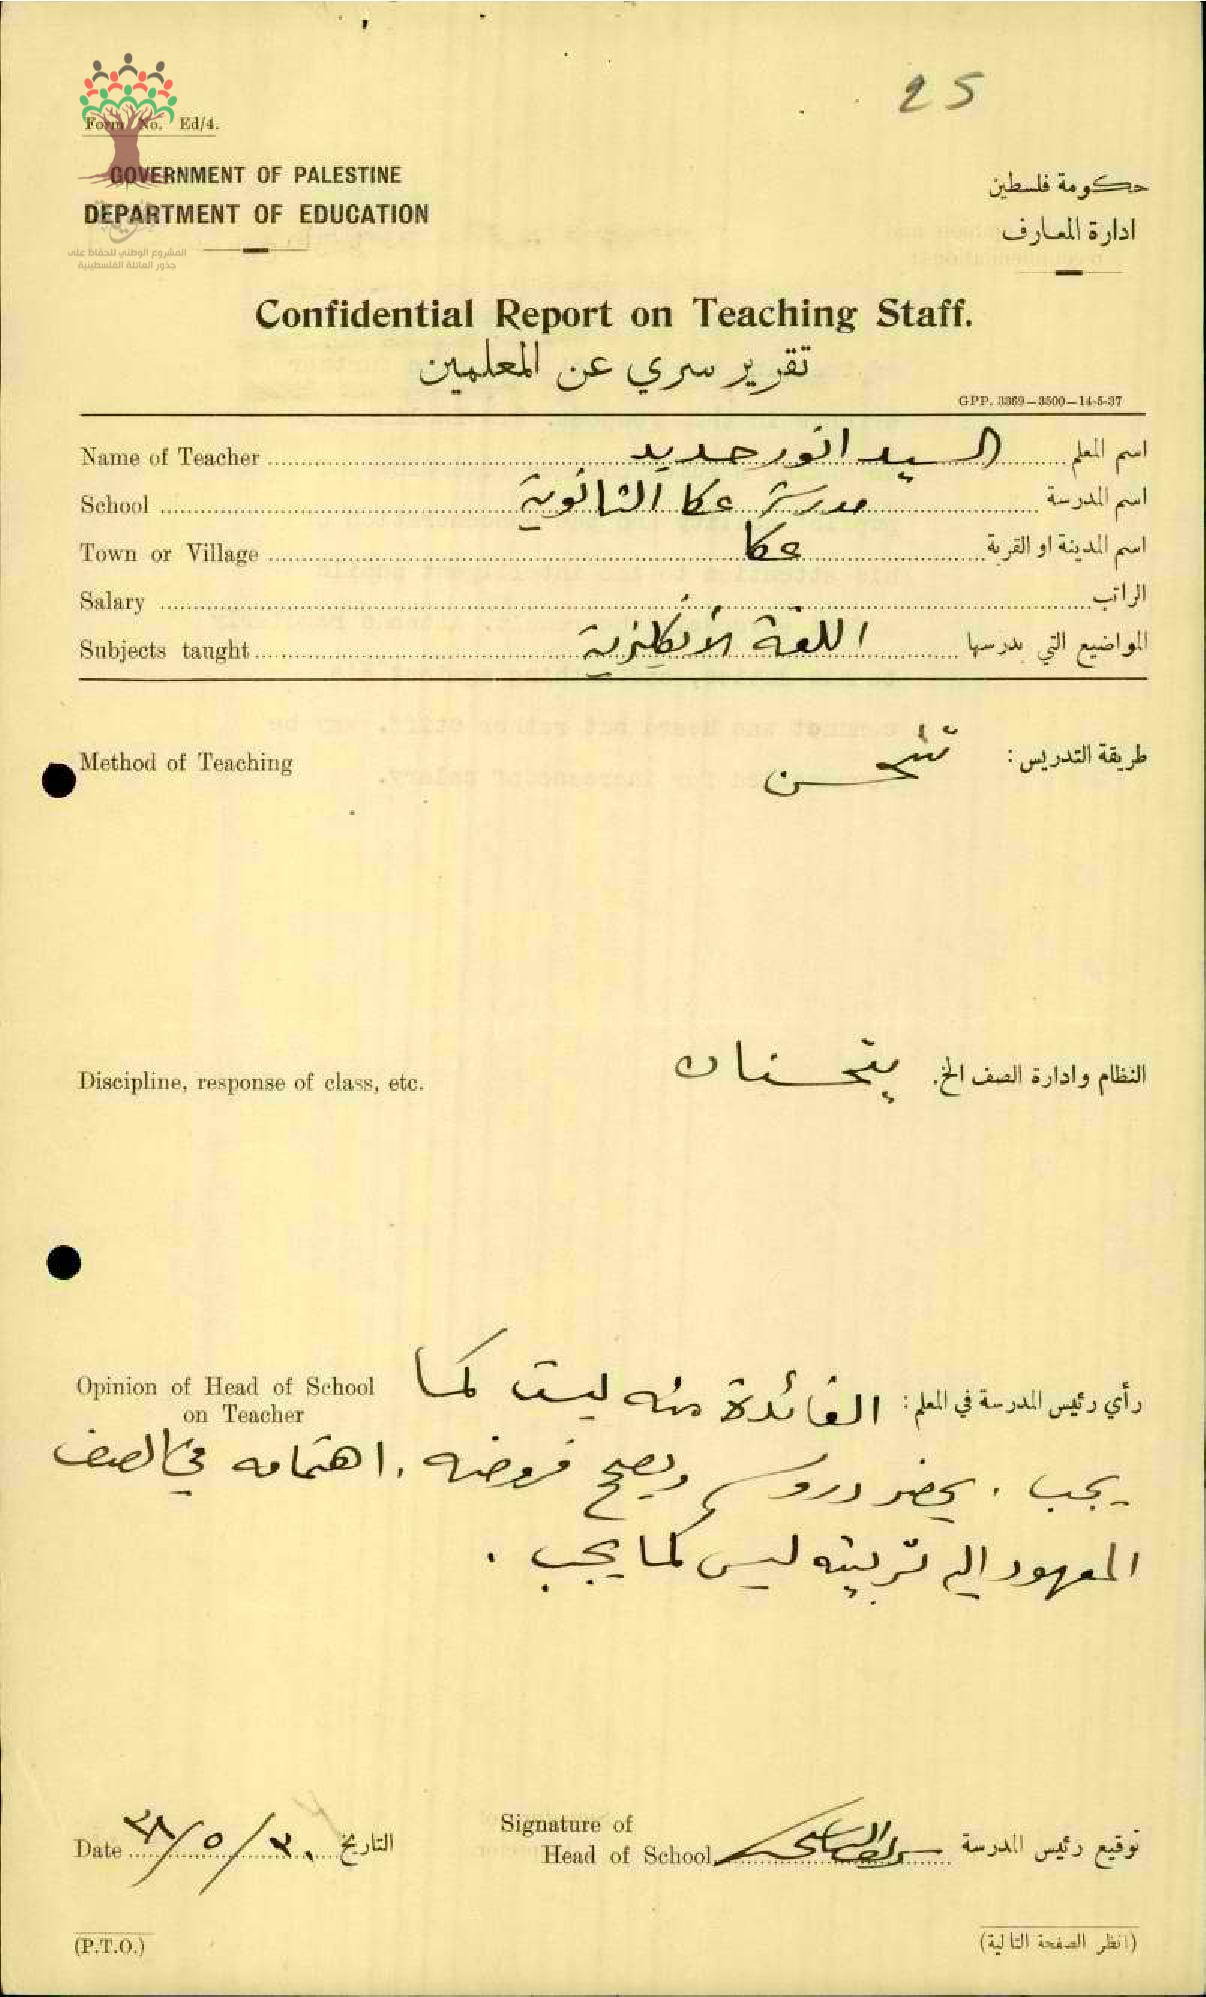 25
Form No. Ed/4.
GOVERNMENT OF PALESTINE
DEPARTMENT OF EDUCATION
حكومة فلسطين
ادارة المعارف
المشروع الوطني للحفاظ على
جذور العائلة الفلسطينية
Confidential Report on Teaching Staff.
تقرير سري عن المعلمين
GPP. 3369—3500—14-5-37
Name of Teacher السيد انور حديد اسم المعلم
School مدرسة عكا الثانوية اسم المدرسة
Town or Village عكا اسم المدينة او القرية
Salary الراتب
Subjects taught اللغة الانكليزية المواضيع التي يدرسها
Method of Teaching تتحسن طريقة التدريس:
Discipline, response of class, etc. يتحسنان النظام وادارة الصف الخ.
Opinion of Head of School
on Teacher
رأي رئيس المدرسة في المعلم: الفائدة منه ليست كما
يجب . يحضر دروسه ويصحح فروضه . اهتمامه في الصف
المعهود اليه تربيته ليس كما يجب .
Date ٣٠/٥/٣٨ التاريخ
Signature of
Head of School توقيع رئيس المدرسة
(P.T.O.)
(انظر الصفحة التالية)